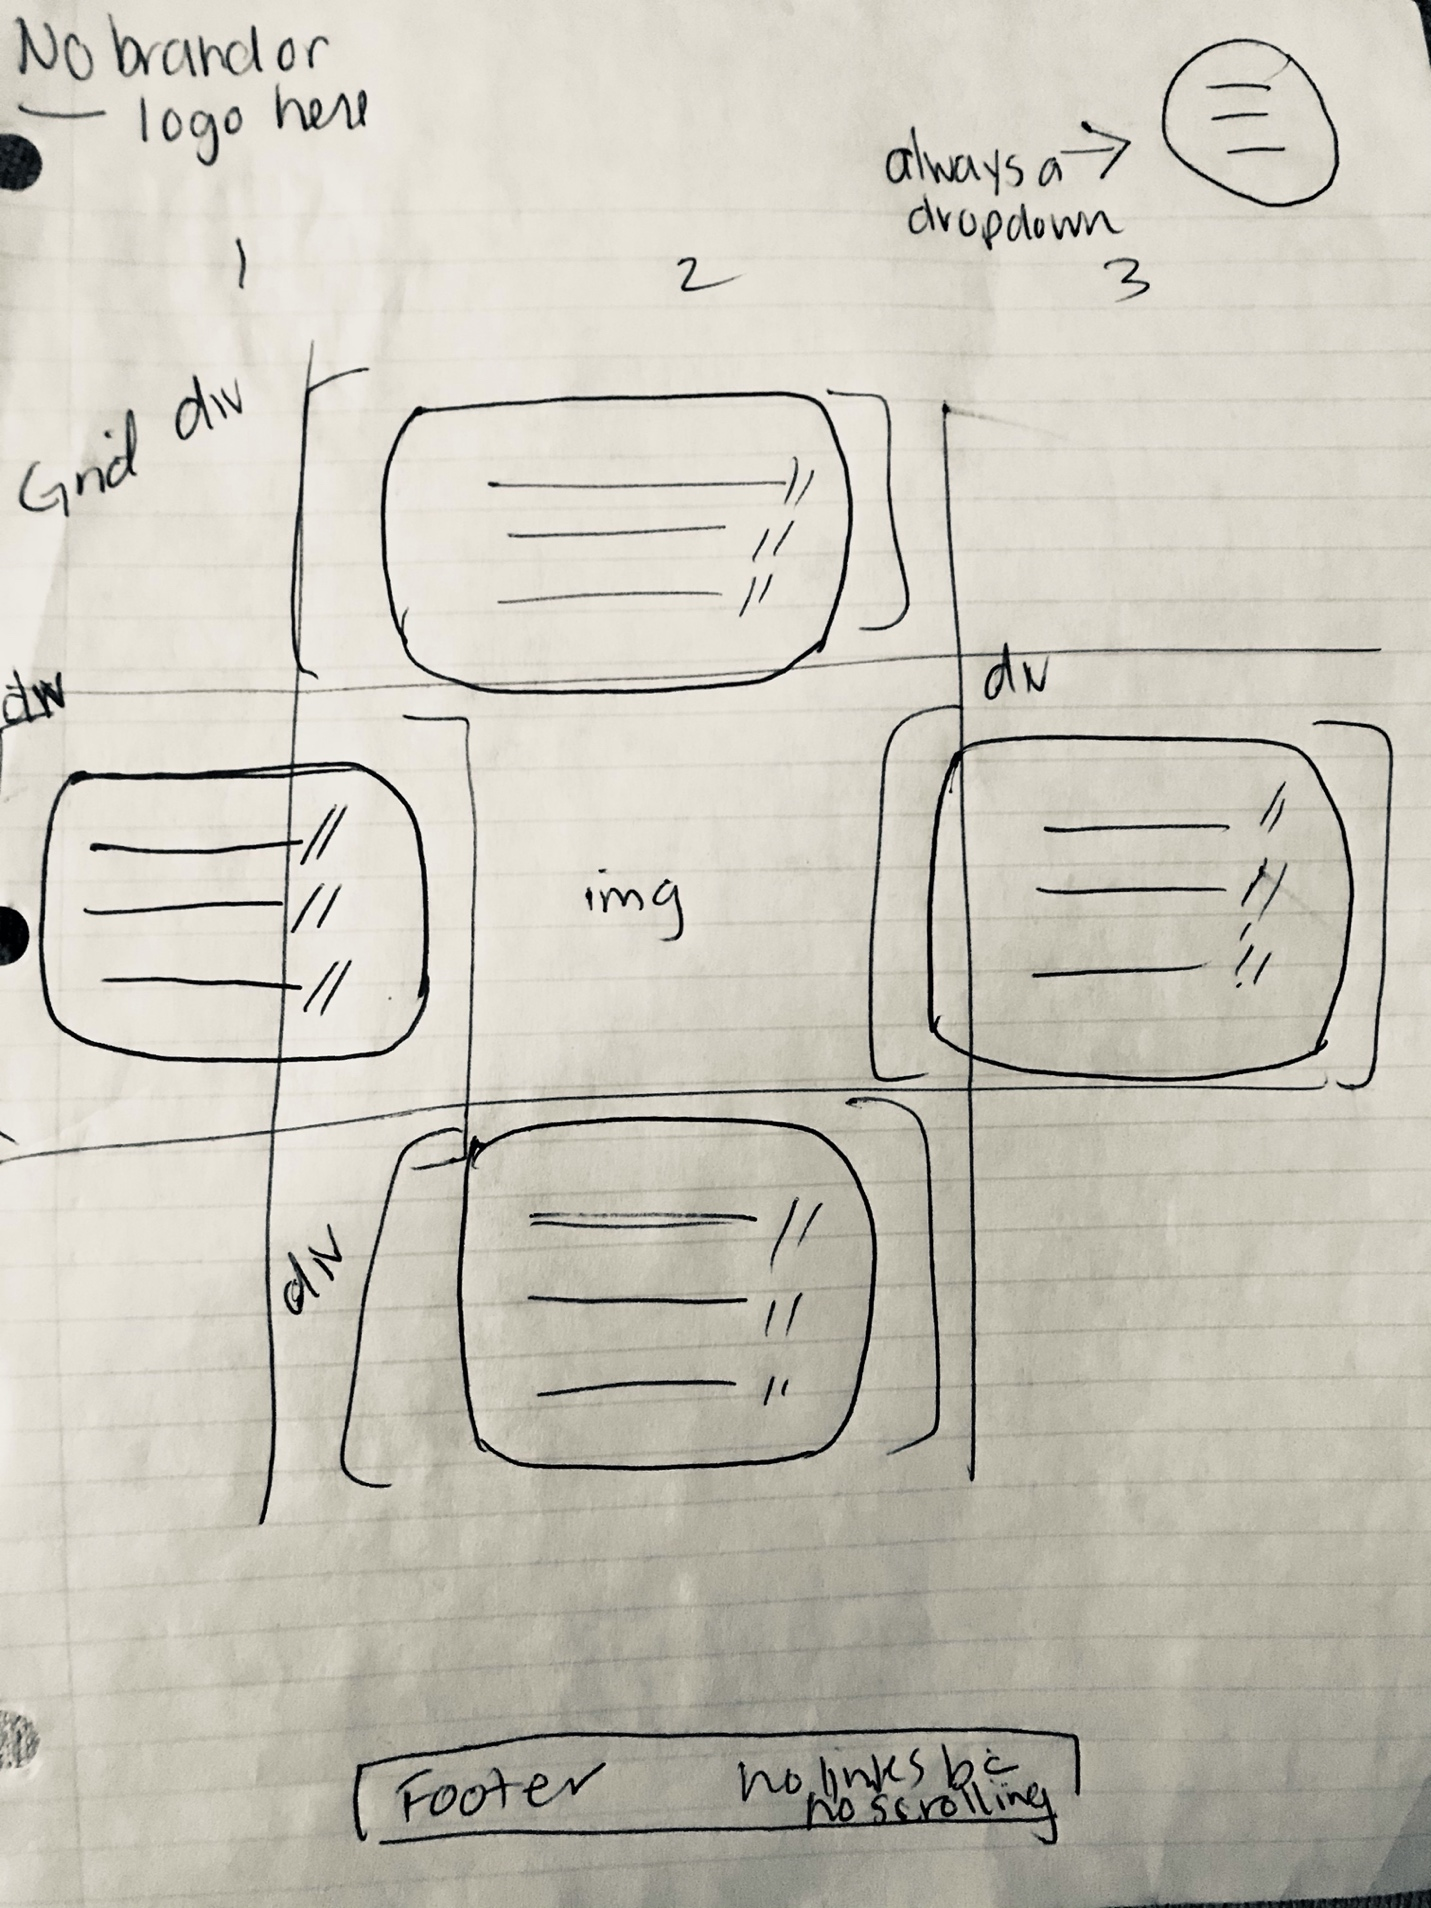 No brand or
logo here
always a
dropdown
1 2 3
Grid div
div
div
img
div
Footer no links bc
no scrolling